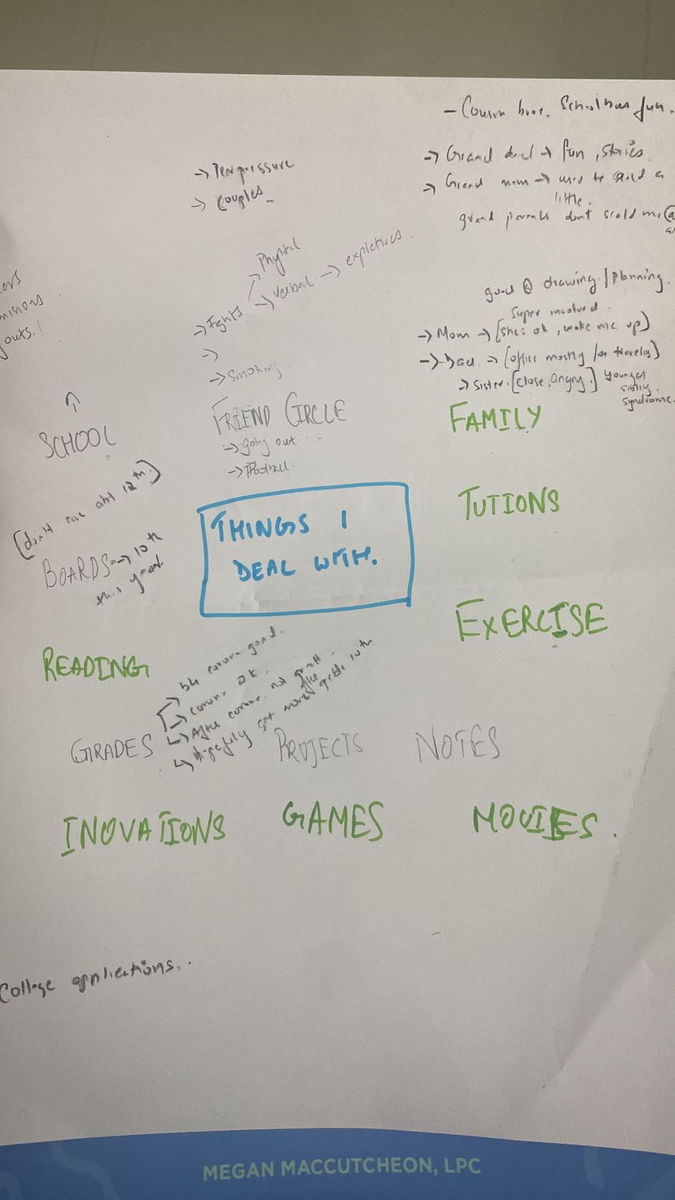 - Cousin bros. School bus fun.
-> Grand dad -> fun, stories.
-> Grand mom -> used to scold a little.
grand parents don't scold me @
-> Peer pressure
-> couples
Physical
-> Fights -> Verbal -> expletives.
->
-> Smoking
FRIEND CIRCLE
-> going out ...
-> Football
good @ drawing / Planning
Super involved
-> Mom -> [she's ok, woke me up]
-> Dad -> [office mostly / or traveling]
-> Sister. [close, angry.] younger sibling syndrome.
FAMILY
outs.!
SCHOOL
[don't care abt 12th.]
BOARDS -> 10th
this year.
THINGS I
DEAL WITH.
TUTIONS
EXERCISE
READING
-> b4 corona good.
-> corona ok.
-> After corona not great
-> Hopefully get more after grade 10th
GRADES
PROJECTS
NOTES
INOVATIONS
GAMES
MOVIES.
College applications..
MEGAN MACCUTCHEON, LPC